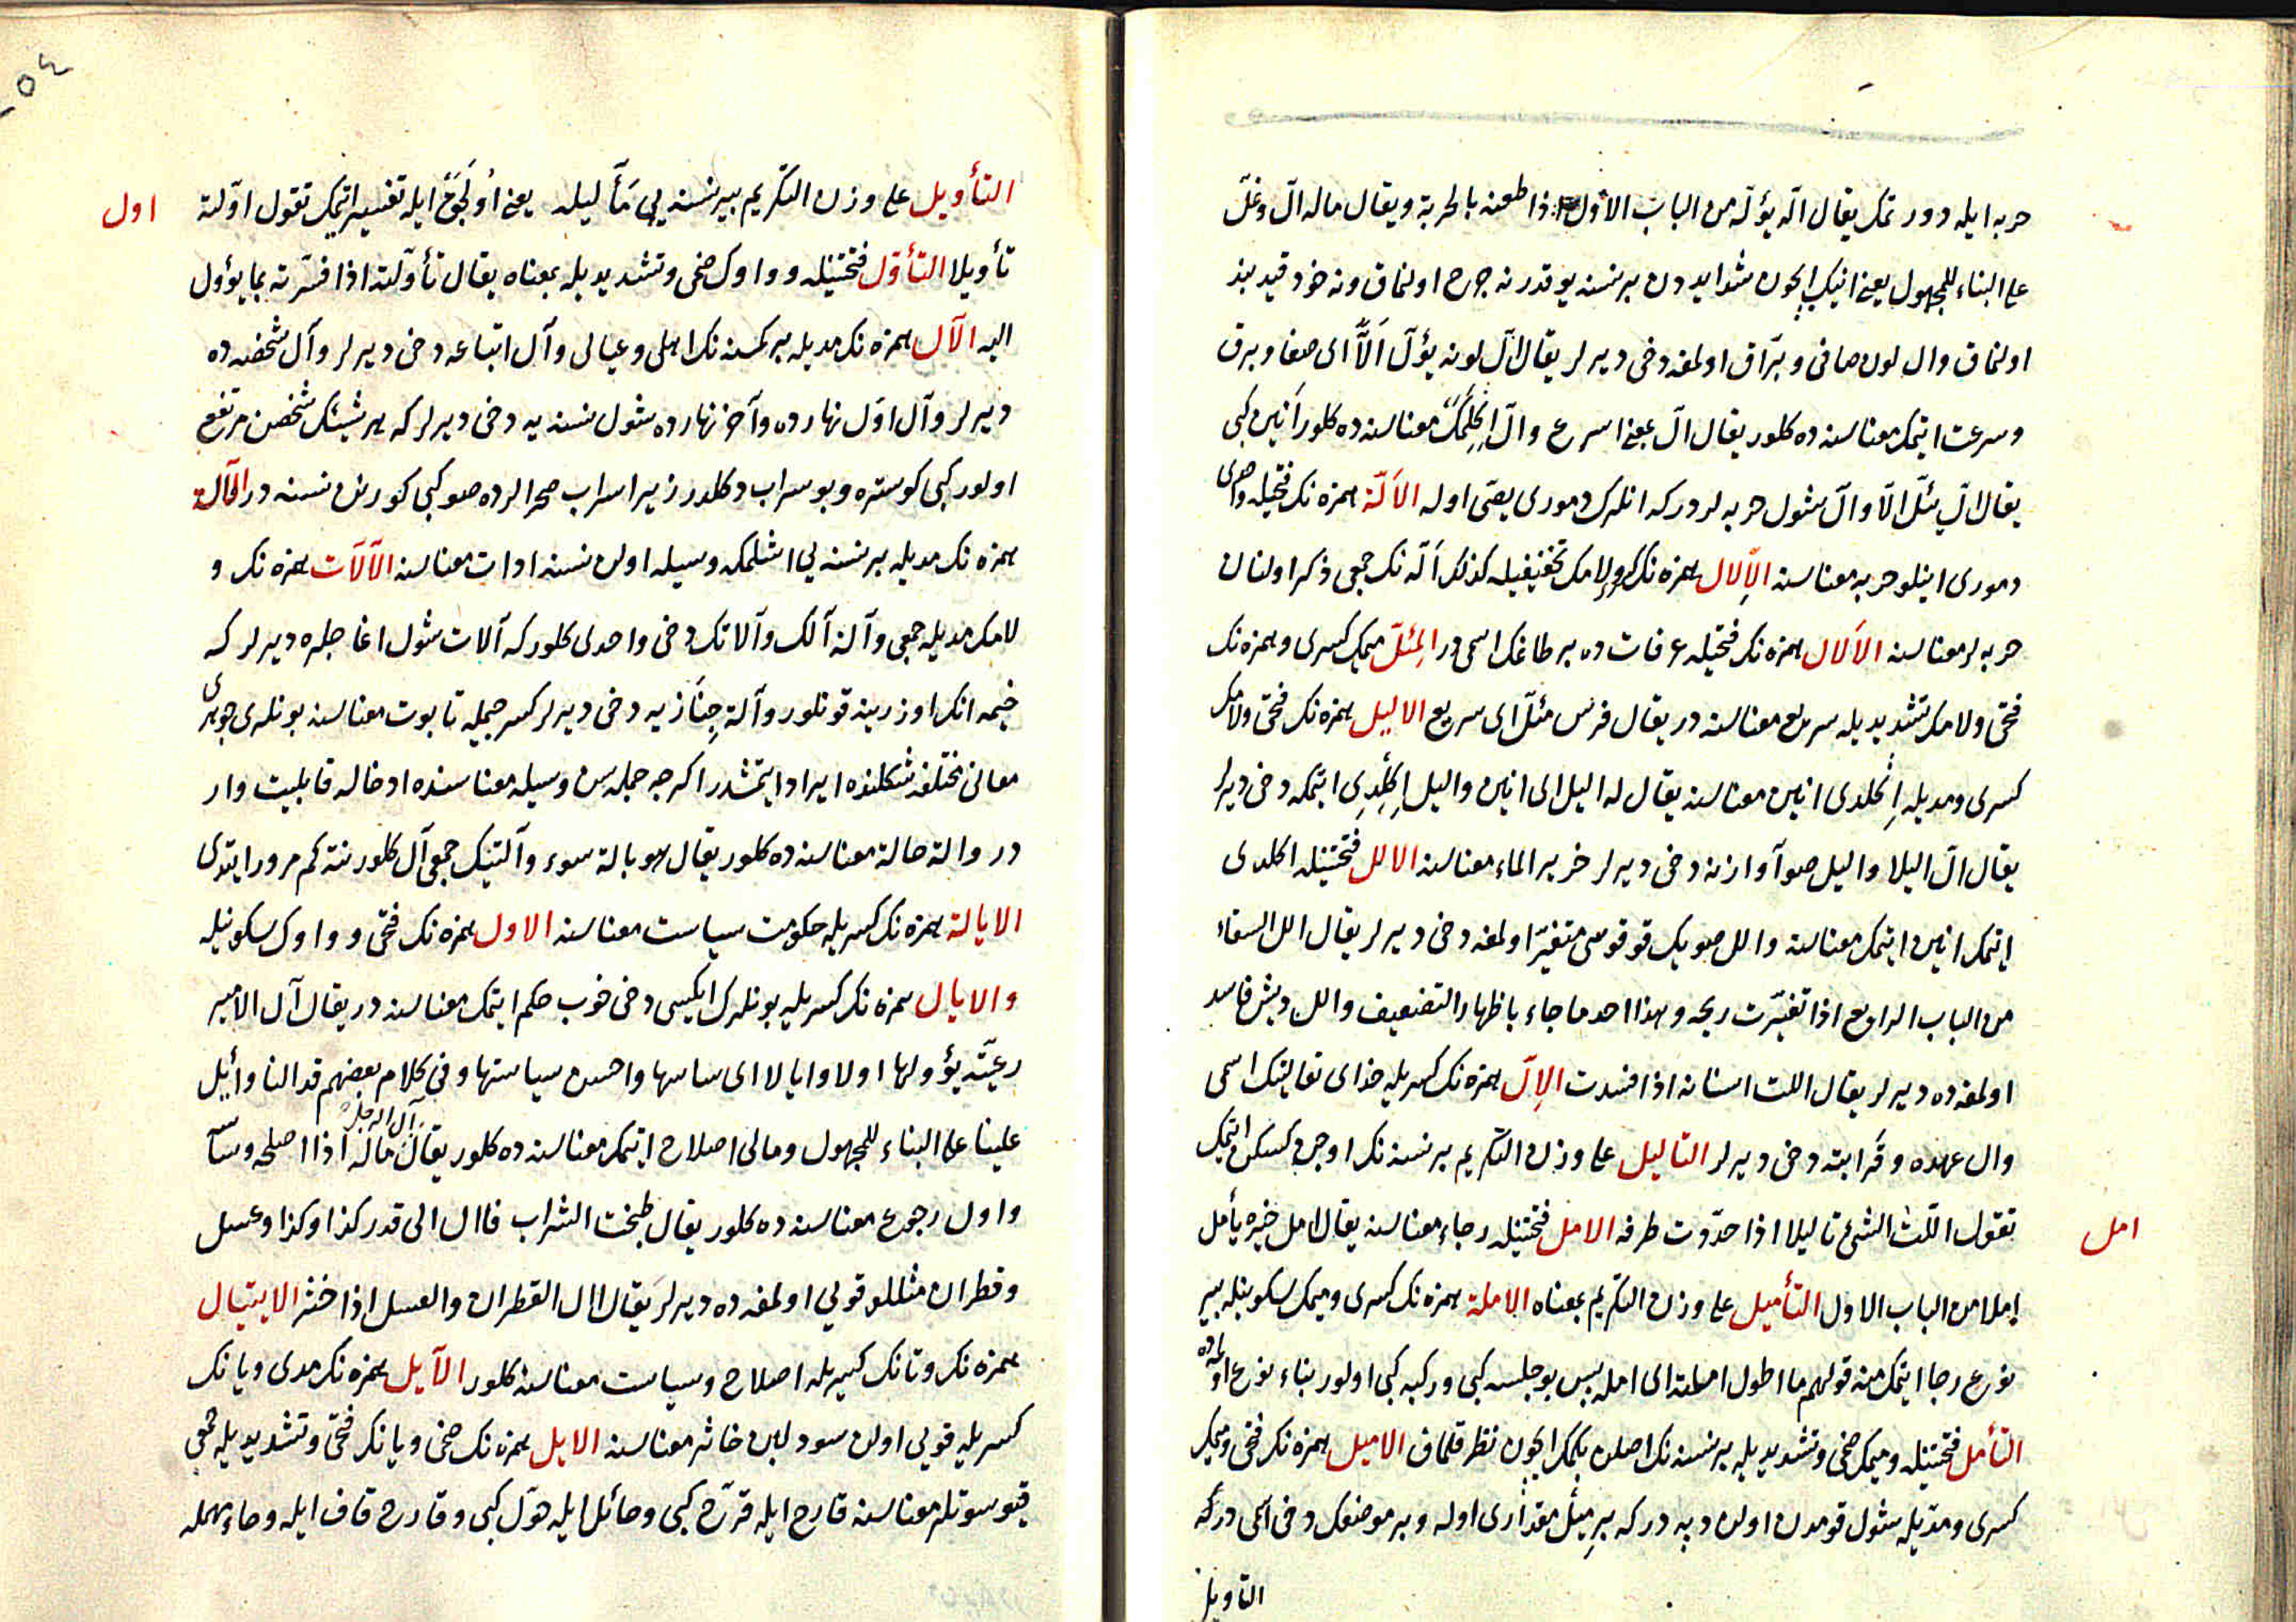 حربه ايله دورتمك يقال الّه يؤلّه من الباب الاول اذا طعنه بالحربة ويقال ماله الّ وغلّ
على البناء للمجهول يعنى انيك ايچون شدايددن برنسنه يوقدر نه جرح اولنماق ونه خود قيدبند
اولنماق وال لون صافى وبرّاق اولمغه دخى ديرلر يقال الّ لونه يؤلّ الًّا اى صفا وبرق
وسرعت ايتمك معناسنه ده كلور يقال الّ بمعنى اسرع والّ اكلمك معناسنه ده كلور انين كبى
يقال الّ يئلّ الّا والّ شول حربه لردر كه انلرك دمورى يصّى اوله الالّة همزه نك فتحيله واحدى
دمورى اينلو حربه معناسنه الإلال همزه نك كسرى ولامك تخفيفيله كذلك الّه نك جمعى ذكر اولنان
حربه لر معناسنه الألال همزه نك فتحيله عرفات ده بر طاغك اسمى در المِئلّ ميمك كسرى وهمزه نك
فتحى ولامك تشديديله سريع معناسنه در يقال فرس مئلّ اى سريع الاليل همزه نك فتحى ولامك
كسرى ومديله اكلدى انين معناسنه يقال له اليل اى انين واليل اكلدى ايتمكه دخى ديرلر
يقال الّ اليلا واليل صو آوازنه دخى ديرلر خرير الماء معناسنه الالل فتحتينله اكلدى
ايتمك انين ايتمك معناسنه والل صويك قوقوسى متغيّر اولمغه دخى ديرلر يقال الل السقاء
من الباب الرابع اذا تغيّرت ريحه وهذا احد ما جاء باظهار التضعيف والل ديش فاسد
اولمغه ده ديرلر يقال اللت اسنانه اذا فسدت الإلّ همزه نك كسريله خداى تعالينك اسمى
وال عهده وقرابته دخى ديرلر التاليل على وزن التكريم برنسنه نك اوجن كسكن ايتمك
تقول اللت الشئ تاليلا اذا حدّدت طرفه الامل فتحتينله رجاء معناسنه يقال امل خيره يأمل
امل
إملا من الباب الاول التأميل على وزن التكريم بمعناه الإملة همزه نك كسرى وميمك سكونيله بير
نوع رجا ايتمك منه قولهم ما اطول املته اى امله پس بو جلسه كبى وركبه كبى اولور بناء نوع اولمقده
التأمل فتحتينله وميمك ضمى وتشديديله برنسنه نك اصلن بلمك ايچون نظر قلماق الاميل همزه نك فتحى وميمك
كسرى ومدّيله شول قومدن اولان دپه در كه بر ميل مقدارى اوله وبر موضعك دخى اسمى دركه
التاويل
التأويل على وزن التكريم بير نسنه يى مآليله يعنى اوُلجَقى ايله تفسير ايتمك تقول اوّلته
اول
تأويلا التأوّل فتحتينله وواوك ضمى وتشديديله بمعناه يقال تأوّلته اذا فسّرته بما يؤول
اليه الآل همزه نك مديله بر كمسنه نك اهلى وعيالى وآل اتباعه دخى ديرلر وآل شخصه ده
ديرلر وآل اوّل نهارده وآخر نهارده شول نسنه يه دخى ديرلر كه هر شيئك شخصن مرتفع
اولور كبى كوستره وبو سراب دكلدر زيرا سراب صحرالرده صو كبى كورنن نسنه در الآلة
همزه نك مديله برنسنه يى اشلمكه وسيله اولان نسنه ادات معناسنه الآلات همزه نك و
لامك مديله جمعى وآلة آلك وآلاتك دخى واحدى كلور كه آلات شول اغاجلره ديرلر كه
خيمه انك اوزرينه قونلور وآلة جِنازه يه دخى ديرلر كسر جيمله تابوت معناسنه بونلرى جوهرى
معانى مختلفه شكلنده ايراد ايتمشدر اكرچه جمله سن وسيله معناسنده ادخاله قابليت وار
در والة حالة معناسنه ده كلور يقال هو بالة سوء وآلتنك جمعى آل كلور نته كم مرور ايتدى
الايالة همزه نك كسريله حكومت سياست معناسنه الاول همزه نك فتحى وواوك سكونيله
والايال همزه نك كسريله بونلرك ايكيسى دخى خوب حكم ايتمك معناسنه در يقال آل الامير
رعيّته يؤولها اولا وايالا اى ساسها واحسن سياستها وفى كلام بعضهم قد النا وأيل
علينا على البناء للمجهول ومالى اصلاح ايتمك معناسنه ده كلور يقال آل الرجل ماله اذا اصلحه وساسه
واول رجوع معناسنه ده كلور يقال طبخت الشراب فآل الى قدر كذا وكذا وعسل
وقطران مثللو قويى اولمغه ده ديرلر يقال آل القطران والعسل اذا خثر الايتيال
همزه نك وتانك كسريله اصلاح وسياست معناسنه كلور الآيل همزه نك مدى ويانك
كسريله قويى اولان سود لبن خاثر معناسنه الايل همزه نك ضمى ويانك فتحى وتشديديله جمعى
قيو سوتلر معناسنه قارح ايله قرّح كبى وحائل ايله حوّل كبى وقارح قاف ايله وحاء مهمله